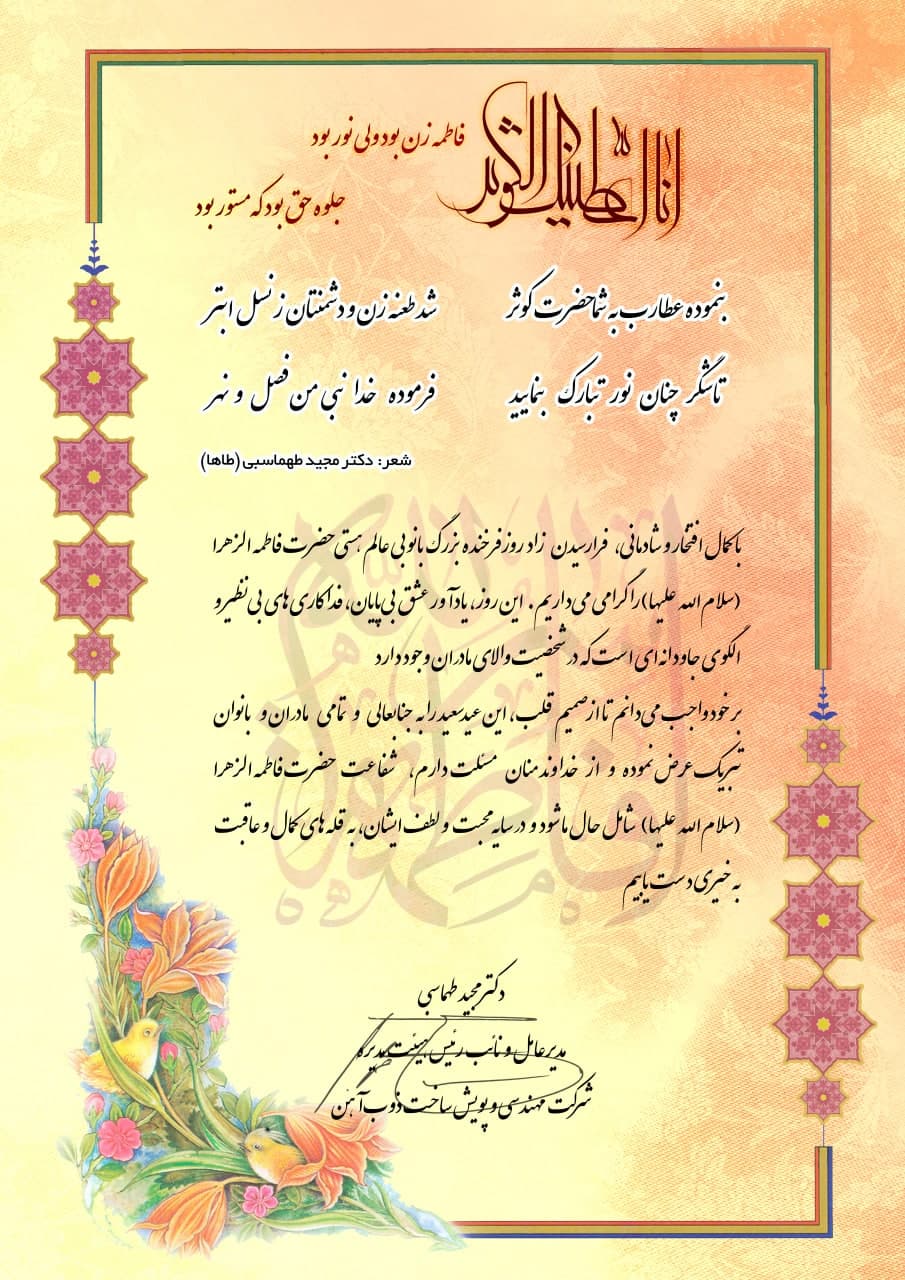 انا اعطیناک الکوثر
فاطمه زن بود ولی نور بود
جلوه حق بود که مستور بود
بنموده عطا رب به شما حضرت کوثر شد طعنه زن و دشمنتان ز نسل ابتر
تا شکر چنان نور تبارک بنمایید فرموده خدا نبی من فصل و نهر
شعر: دکتر مجید طهماسبی (طاها)
با کمال افتخار و شادمانی، فرارسیدن زادروز فرخنده بزرگ بانوی عالم هستی حضرت فاطمه الزهرا
(سلام الله علیها) را گرامی می داریم. این روز، یادآور عشق بی پایان، فداکاری های بی نظیر و
الگوی جاودانه ای است که در شخصیت والای مادران وجود دارد
بر خود واجب می دانم تا از صمیم قلب، این عید سعید را به جنابعالی و تمامی مادران و بانوان
تبریک عرض نموده و از خداوند منان مسئلت دارم، شفاعت حضرت فاطمه الزهرا
(سلام الله علیها) شامل حال ما شود و در سایه محبت و لطف ایشان، به قله های کمال و عاقبت
به خیری دست یابیم
دکتر مجید طهماسبی
مدیرعامل و نائب رئیس هیئت مدیره
شرکت مهندسی و پویش ساخت ذوب آهن